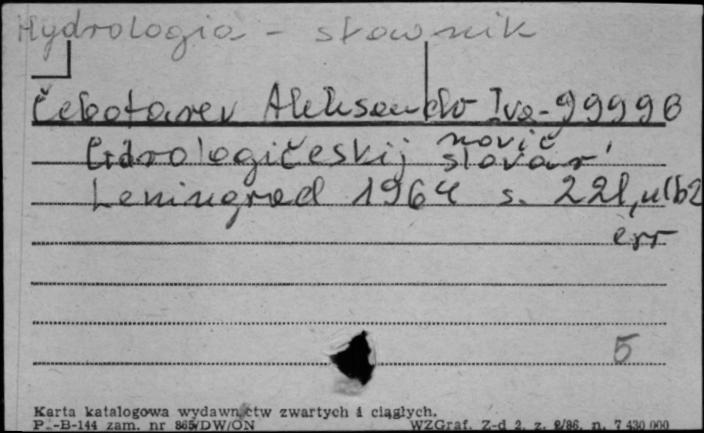 Hydrologia - słownik
Čebotarev Aleksandr Iva- 99996
novič
Gidrologičeskij slovar'
Leningrad 1964 s. 221, nlb2
err
5
Karta katalogowa wydawnictw zwartych i ciągłych.
P.-B-144 zam. nr 865/DW/ON WZGraf. Z-d 2, z. 2/86. n. 7 430 000